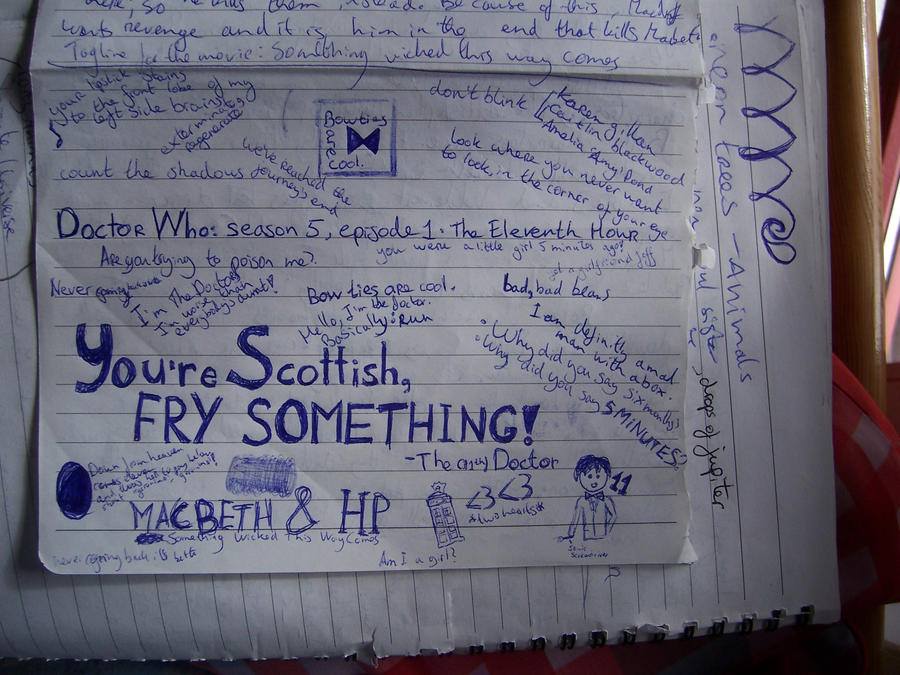 here. So he has them, instead. Because of this, Macduff
wants revenge and it is him in the end that kills Macbeth
Tagline for the movie: Something wicked this way comes
your lipstick stains
to the front lobe of my
left side brains
exterminate,
regenerate
Bowties
are
cool.
don't blink
Karen gillan
Caitlin blackwood
Amelia "Amy" Pond
Look where you never want
to look, in the corner of your eye
count the shadows
we've reached the
journey's end
Doctor Who: season 5, episode 1: The Eleventh Hour
you were a little girl 5 minutes ago!
Are you trying to poison me?
get a girlfriend Jeff
Never
I'm The Doctor
I'm worse than
everybody's aunt!
Bow ties are cool.
Hello, I'm the doctor.
Basically: Run
bad, bad beans
I am definitly a mad
man with a box.
Why did you say six months?
Why did you say 5 MINUTES?
You're Scottish,
FRY SOMETHING!
-The Doctor
Down from heaven
MACBETH & HP
Something Wicked This Way Comes
<3 <3
*two hearts*
11
Sonic
Screwdriver
never coming back
Am I a girl?
neon trees - Animals
soul sister
, drops of jupiter